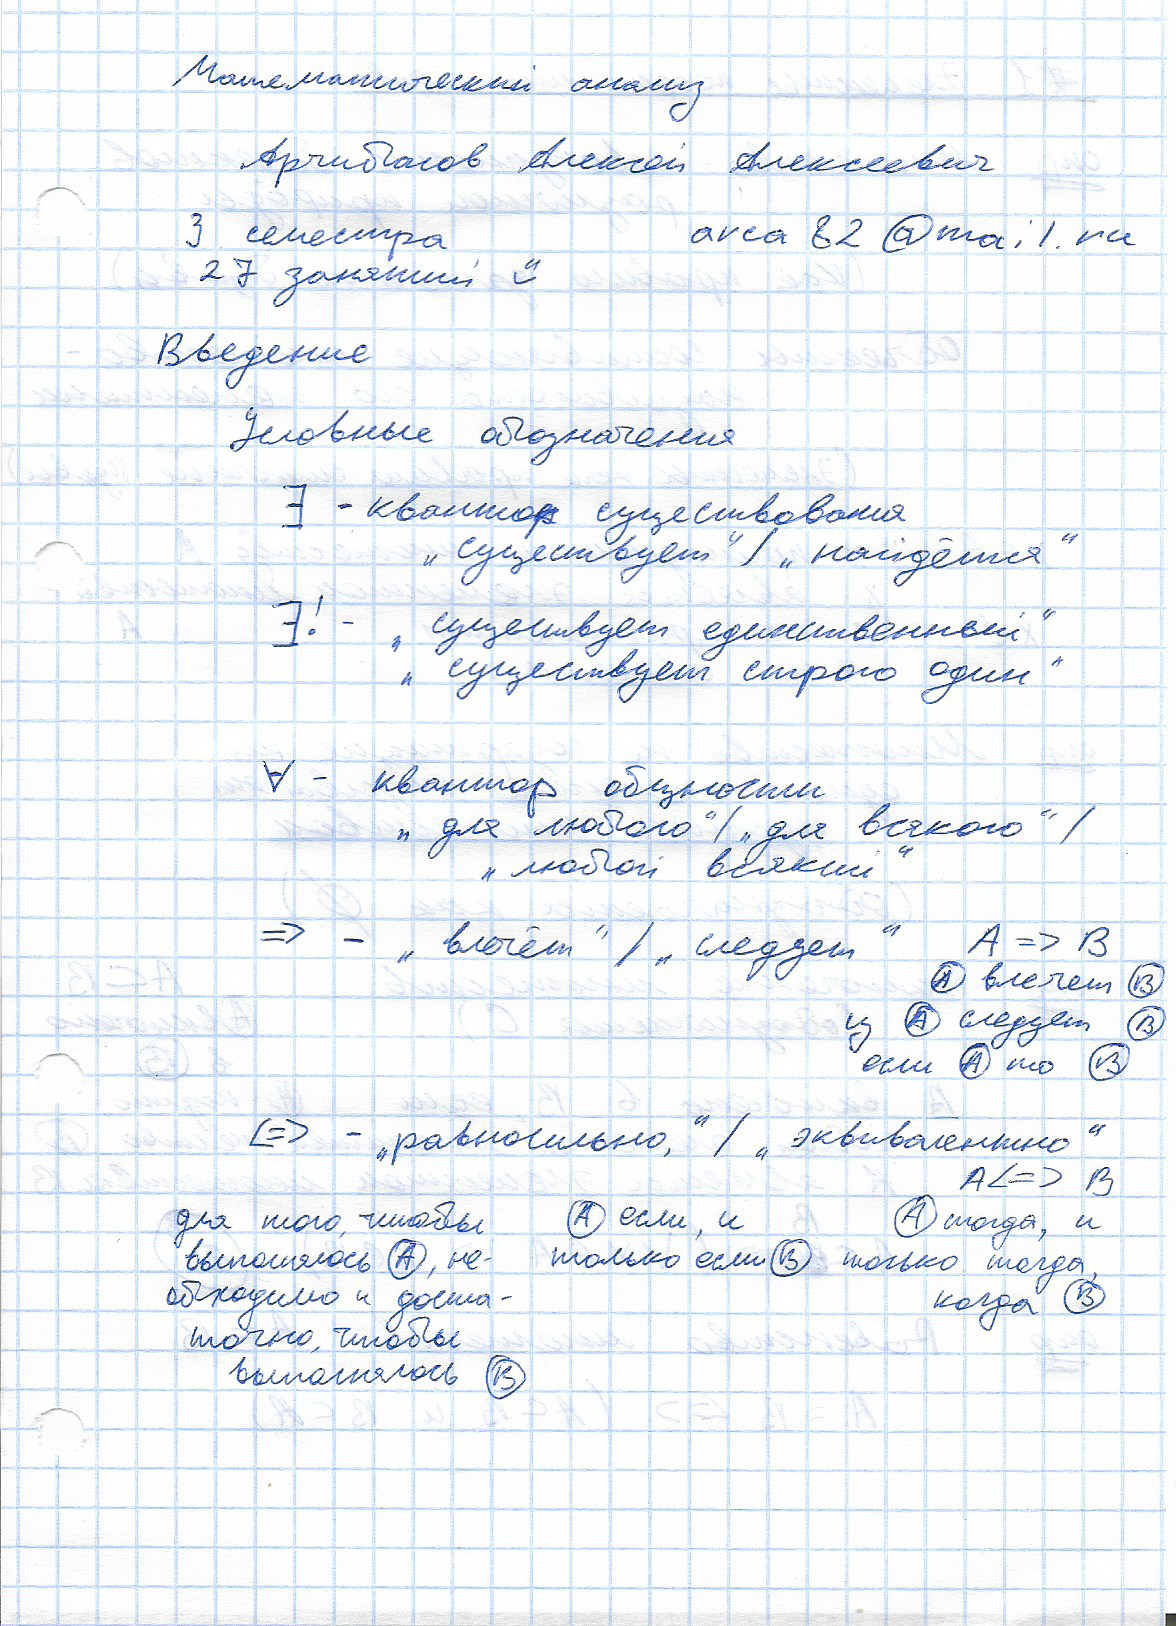 Математический анализ
Арчибасов Алексей Алексеевич
3 семестра
arca82@mail.ru
27 занятий
Введение
Условные обозначения
∃ - квантор существования
„существует“ / „найдётся“
∃! - „существует единственный“
„существует строго один“
∀ - квантор общности
„для любого“ / „для всякого“ /
„любой всякий“
=> - „влечёт“ / „следует“ A => B
A влечет B
из A следует B
если A то B
<=> - „равносильно,“ / „эквивалентно“
A <=> B
для того, чтобы
выполнялось A, не-
обходимо и доста-
точно, чтобы
выполнялось B
A если, и
только если B
A тогда, и
только тогда,
когда B